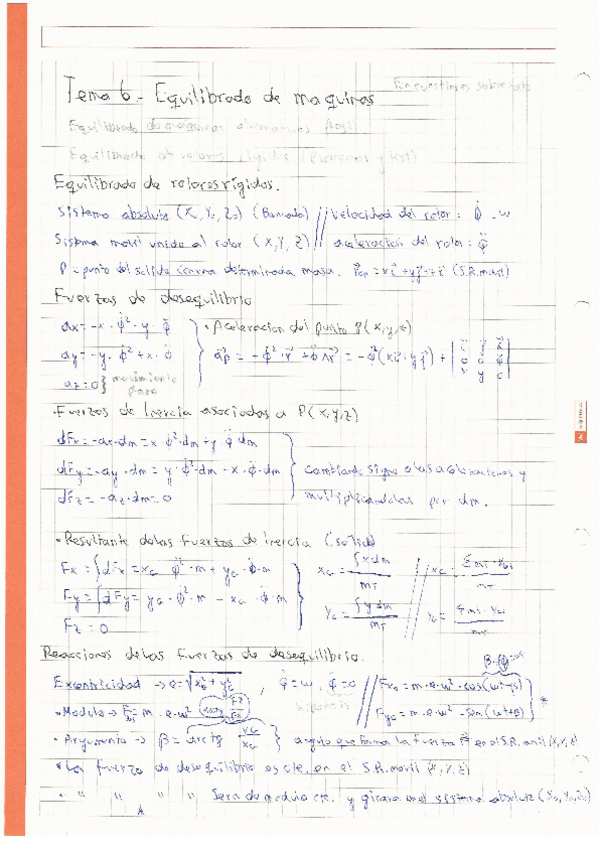 Tema 6.- Equilibrado de maquinas
Equilibrado de maquinas alternativas (test)
Equilibrado de rotores rígidos
Equilibrado de rotores rígidos.
Sistema absoluto (X₀, Y₀, Z₀) (Bancada) // velocidad del rotor: φ̇ = w
Sistema movil unido al rotor (X, Y, Z) // aceleración del rotor: φ̈
P = punto del solido con una determinada masa. (S.R. movil)
Fuerzas de desequilibrio
ax = -x · φ̇² - y · φ̈
ay = -y · φ̇² + x · φ̈
az = 0 } movimiento plano
· Aceleracion del punto P(x,y,z)
· Fuerzas de Inercia asociadas a P(x,y,z)
dFx = -ax·dm = x φ̇²·dm + y φ̈·dm
dFy = -ay·dm = y·φ̇²·dm - x·φ̈·dm
dFz = -az·dm = 0
cambiando signo a las aceleraciones y
multiplicandolas por dm.
· Resultante de las Fuerzas de Inercia (solido)
Fx = ∫dFx = xG φ̇²·m + yG·φ̈·m
Fy = ∫dFy = yG·φ̇²·m - xG·φ̈·m
Fz = 0
xG = ∫x dm / mT // xG = Σmi·xGi / mT
yG = ∫y dm / mT // yG = Σmi·yGi / mT
Reacciones de las Fuerzas de desequilibrio.
Excentricidad → e = √(xG² + yG²), φ̇ = w, φ̈ = 0 // Fx₀ = m·e·w²·cos(wt+β)
Fy₀ = m·e·w²·sen(wt+β) *
· Modulo → m·e·w²
· Argumento → β = arctg yG/xG } angulo que forma la Fuerza F en el S.R. movil (X,Y,Z)
· La Fuerza de desequilibrio es cte. en el S.R. movil (X,Y,Z)
· " " " " Sera de modulo cte. y girara en el sistema absoluto (X₀,Y₀,Z₀)